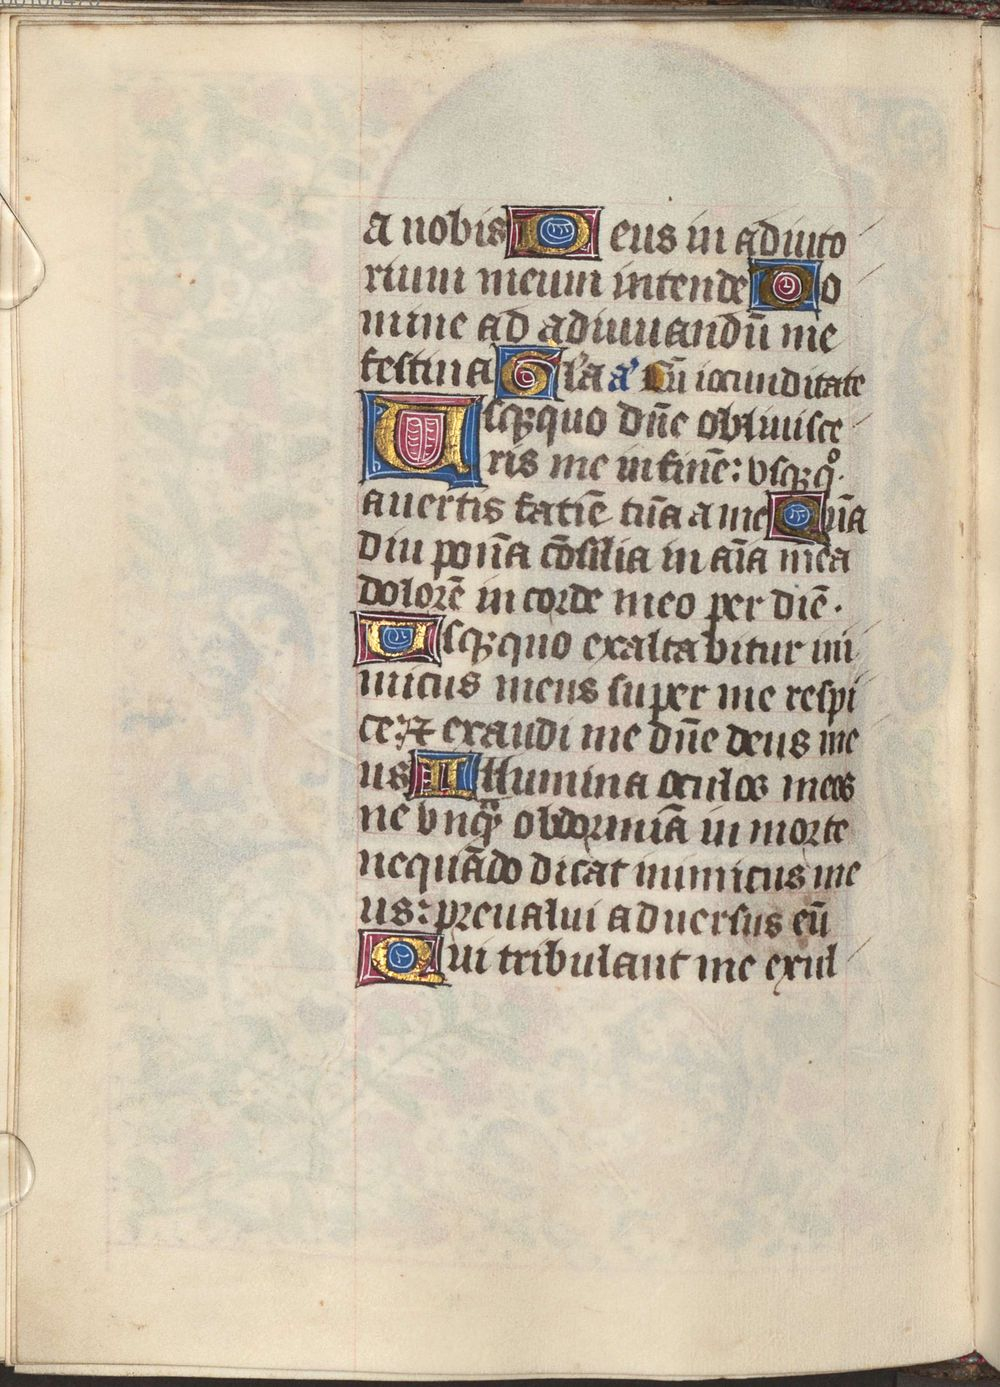 a nobis Deus in adiuto
rium meum intende Do
mine ad adiuuandū me
festina Gl'a a' Cū iocunditate
Usq̨quo dn̄e obliuisce
ris me infinē: vsq̨qͦ.
auertis faciē tuā a me Quā
diu ponā cōsilia in aīa mea
dolorē in corde meo per diē.
Usq̨quo exaltabitur ini
micus meus super me respi
ce: ⁊ exaudi me dn̄e deus me
us Illumina oculos meos
ne vnq̄ obdormiā in morte
nequādo dicat inimicus me
us: preualui aduersus eū
Qui tribulant me exul